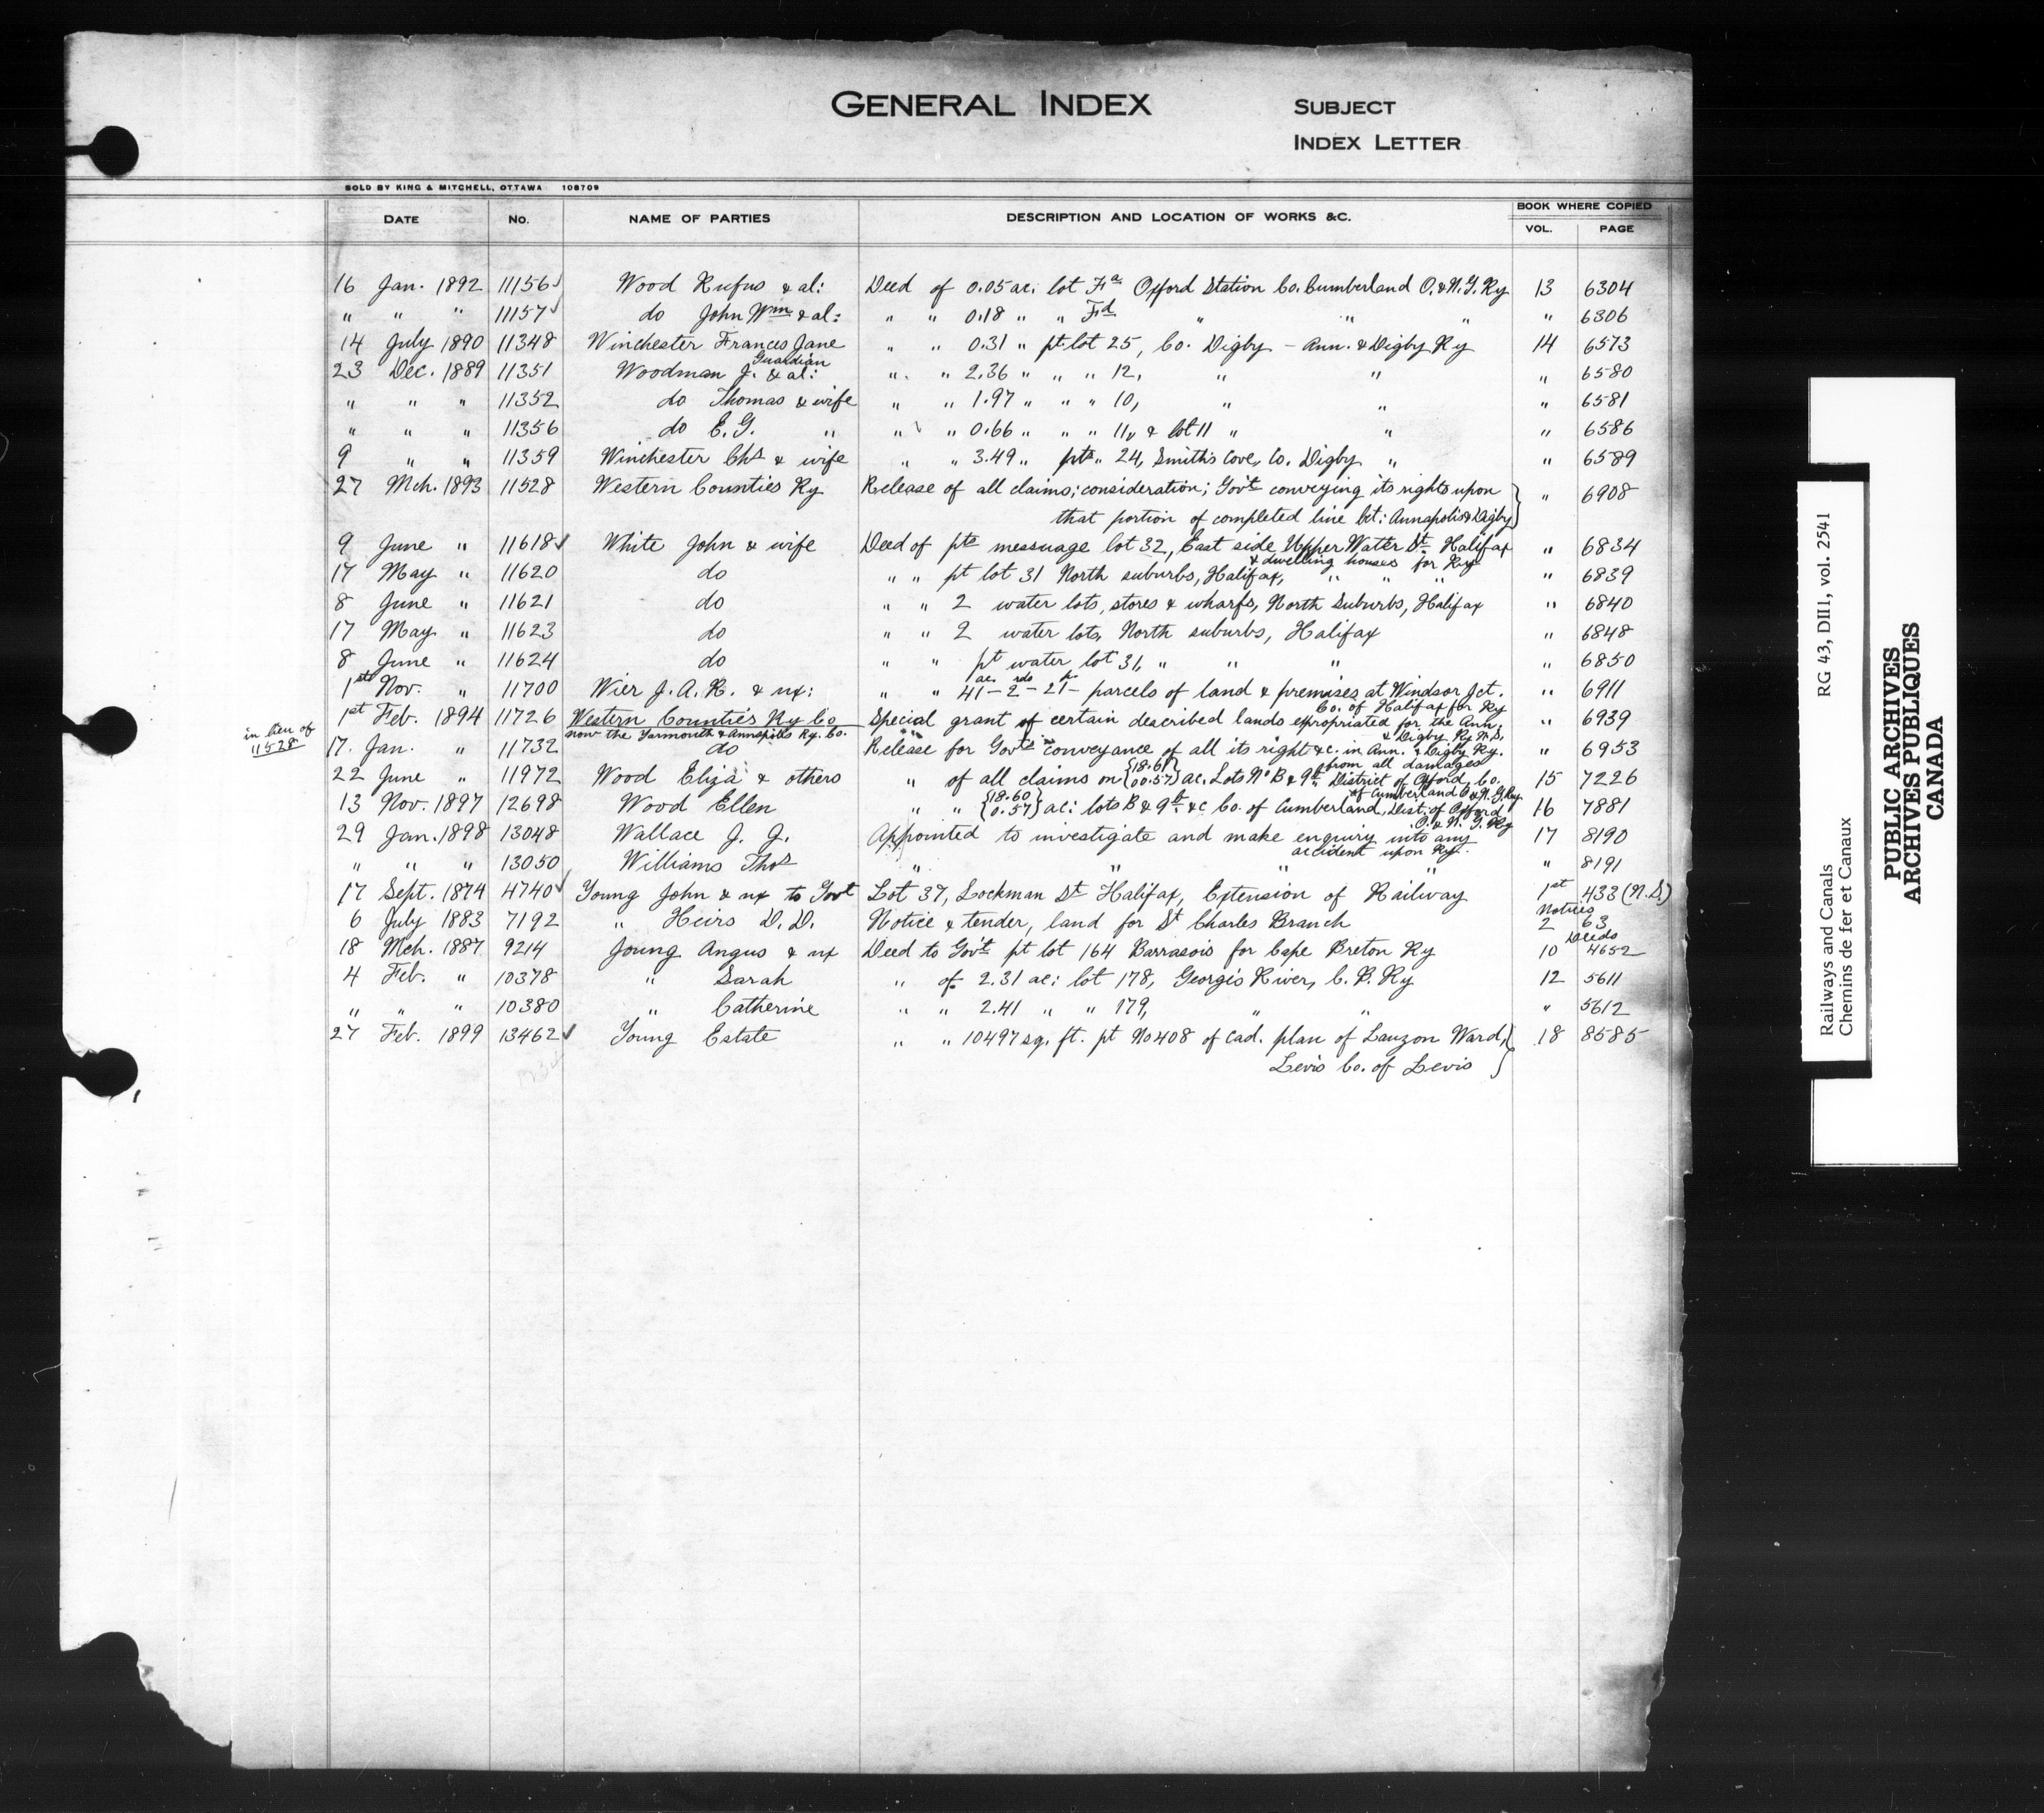 GENERAL INDEX
SUBJECT
INDEX LETTER
SOLD BY KING & MITCHELL, OTTAWA 108709
DATE No. NAME OF PARTIES DESCRIPTION AND LOCATION OF WORKS &C. BOOK WHERE COPIED
VOL. PAGE
16 Jan. 1892 11156 Wood Rufus & al: Deed of 0.05 ac. lot Fa Oxford Station Co. Cumberland O. & N. G. Ry 13 6304
" " " 11157 do John Wm & al: " " 0.18 " " Fd " " " " 6306
14 July 1890 11348 Winchester Frances Jane " " 0.31 " pt. lot 25, Co. Digby – Ann. & Digby Ry 14 6573
Guardian
23 Dec. 1889 11351 Woodman J. & al: " " 2.36 " " " 12, " " " 6580
" " " 11352 do Thomas & wife " " 1.97 " " " 10, " " " 6581
" " " 11356 do E. G. " " " 0.66 " " " 11, & lot 11 " " " 6586
9 " " 11359 Winchester Chs & wife " " 3.49 " pts " 24, Smith's Cove, Co. Digby " " 6589
27 Mch. 1893 11528 Western Counties Ry Release of all claims; consideration; Gov't conveying its rights upon " 6908
that portion of completed line bet: Annapolis & Digby
9 June " 11618 White John & wife Deed of pts messuage lot 32, East side Upper Water St Halifax " 6834
& dwelling houses for Ry
17 May " 11620 do " " pt lot 31 North suburbs, Halifax, " " " " 6839
8 June " 11621 do " " 2 water lots, stores & wharfs, North Suburbs, Halifax " 6840
17 May " 11623 do " " 2 water lots, North suburbs, Halifax " 6848
8 June " 11624 do " " pt water lot 31, " " " " 6850
ac. rds p.
1st Nov. " 11700 Wier J. A. R. & ux: " " 41 – 2 – 21 – parcels of land & premises at Windsor Jct. " 6911
Co. of Halifax for Ry
1st Feb. 1894 11726 Western Counties Ry Co Special grant of certain described lands expropriated for the Ann. " 6939
now the Yarmouth & Annapolis Ry. Co. & Digby Ry N.S.
in lieu of
11528
17 Jan. " 11732 do Release for Gov'ts conveyance of all its right &c. in Ann. & Digby Ry. " 6953
from all damages
22 June " 11972 Wood Eliza & others " of all claims on {18.61 00.57} ac. Lots No B & 9b, District of Oxford, Co. 15 7226
of Cumberland O & N. G. Ry.
13 Nov. 1897 12698 Wood Ellen " " {18.60 0.57} ac: lots B & 9b & c Co. of Cumberland, Dist. of Oxford 16 7881
O. & N. G. Ry
29 Jan. 1898 13048 Wallace J. J. Appointed to investigate and make enquiry into any 17 8190
accident upon Ry.
" " " 13050 Williams Thos " " " " " 8191
17 Sept. 1874 4740 Young John & ux to Govt Lot 37, Lockman St Halifax, Extension of Railway 1st 433 (N.S.)
Notices
6 July 1883 7192 " Heirs D. D. Notice & tender, land for St Charles Branch 2 63
Deeds
18 Mch. 1887 9214 Young Angus & ux Deed to Gov't pt lot 164 Barrasois for Cape Breton Ry 10 4652
4 Feb. " 10378 " Sarah " of 2.31 ac: lot 178, Georges River, C. B. Ry 12 5611
" " " 10380 " Catherine " " 2.41 " " 179, " " " 5612
27 Feb. 1899 13462 Young Estate " " 10497 sq. ft. pt No 408 of cad. plan of Lauzon Ward, 18 8585
Levis Co. of Levis
RG 43, DII1, vol. 2541
Railways and Canals
Chemins de fer et Canaux
PUBLIC ARCHIVES
ARCHIVES PUBLIQUES
CANADA